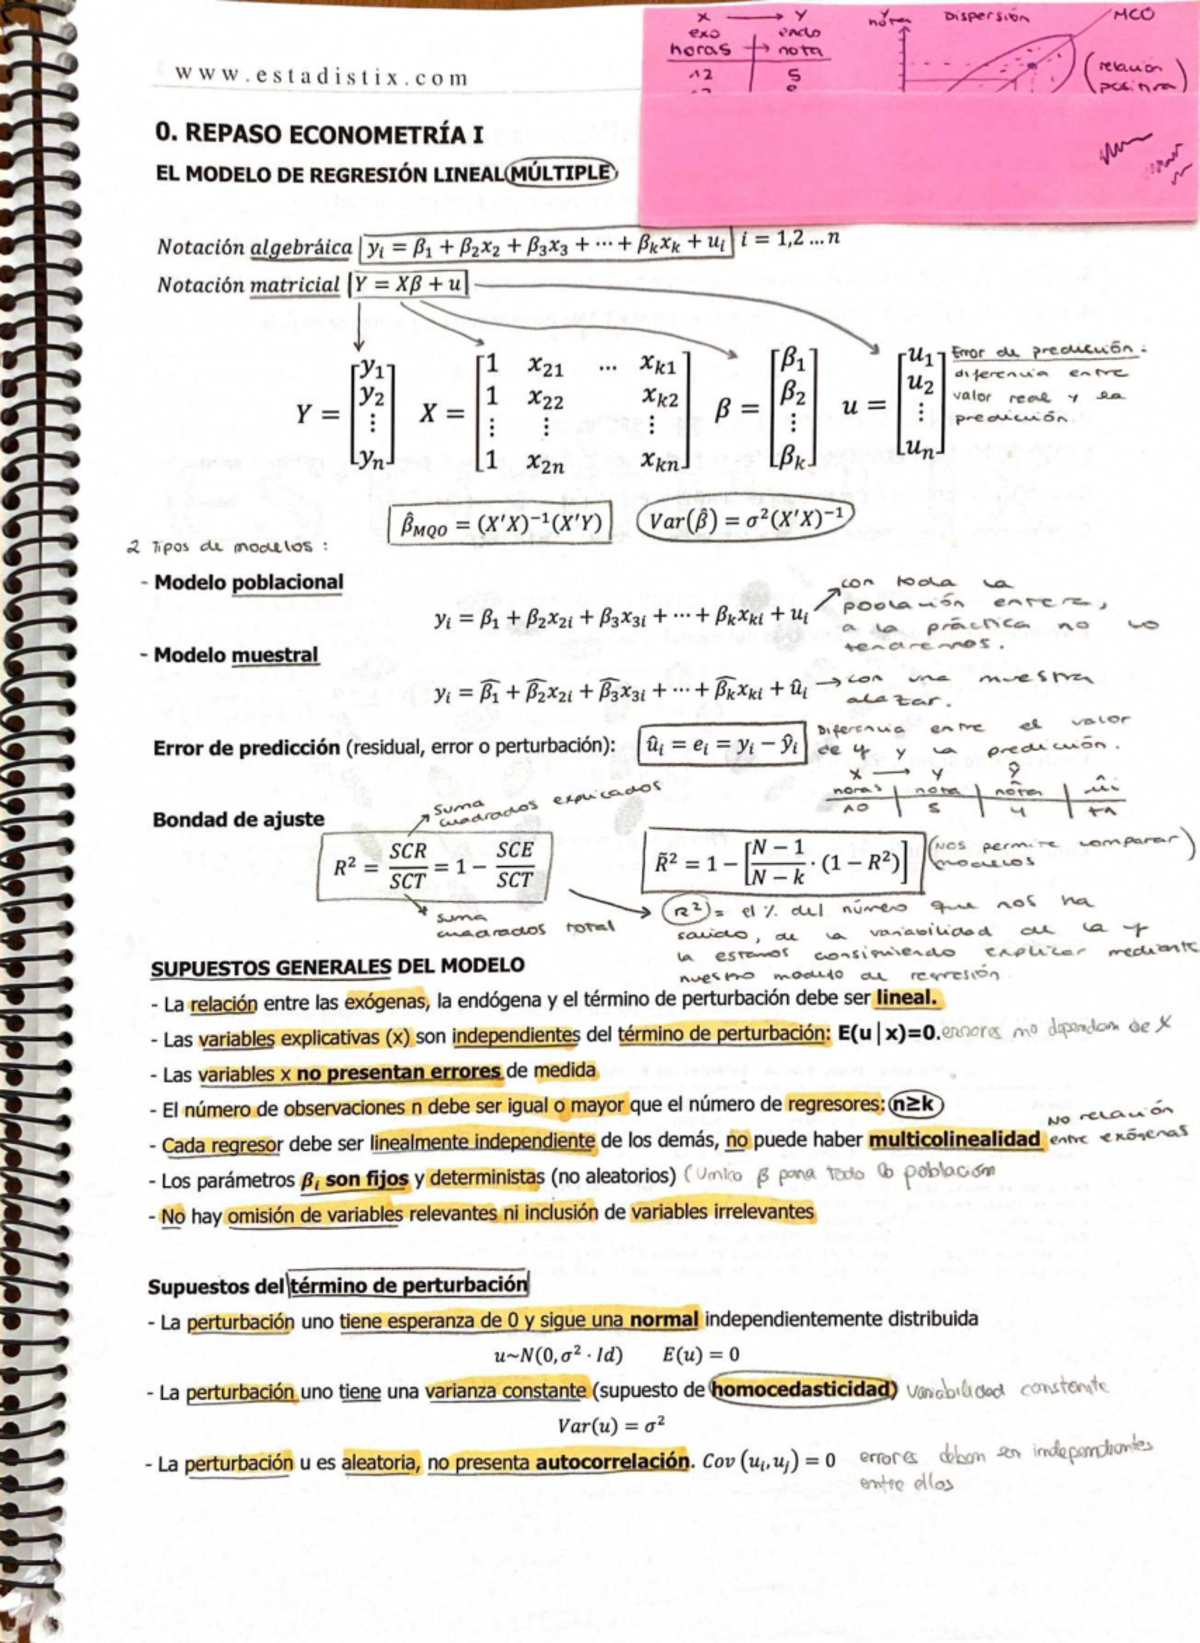 x → y
exo endo
horas → nota
12 5
y nota
Dispersión
MCO
(relación positiva)
www.estadistix.com
0. REPASO ECONOMETRÍA I
EL MODELO DE REGRESIÓN LINEAL MÚLTIPLE
Notación algebráica y_i = β_1 + β_2x_2 + β_3x_3 + ⋯ + β_kx_k + u_i i = 1,2 … n
Notación matricial Y = Xβ + u
Y = [y_1 y_2 ⋮ y_n] X = [1 x_21 … x_k1; 1 x_22 x_k2; ⋮ ⋮ ⋮; 1 x_2n x_kn] β = [β_1 β_2 ⋮ β_k] u = [u_1 u_2 ⋮ u_n]
Error de predicción:
diferencia entre
valor real y la
predicción.
β̂_MQO = (X′X)⁻¹(X′Y) Var(β̂) = σ²(X′X)⁻¹
2 Tipos de modelos:
- Modelo poblacional
y_i = β_1 + β_2x_2i + β_3x_3i + ⋯ + β_kx_ki + u_i
con toda la
población entera,
a la práctica no lo
tendremos.
- Modelo muestral
y_i = β̂_1 + β̂_2x_2i + β̂_3x_3i + ⋯ + β̂_kx_ki + û_i → con una muestra
alazar.
Error de predicción (residual, error o perturbación): û_i = e_i = y_i − ŷ_i
Diferencia entre el valor
de y y la predicción.
x → y ŷ
horas nota nota ûi
10 5 4 +1
Bondad de ajuste
suma
cuadrados explicados
R² = SCR/SCT = 1 − SCE/SCT
R̃² = 1 − [N − 1/N − k · (1 − R²)]
(Nos permite comparar)
modelos
suma
cuadrados total
R² = el % del número que nos ha
salido, de la variabilidad de la y
la estamos consiguiendo explicar mediante
nuestro modelo de regresión
SUPUESTOS GENERALES DEL MODELO
- La relación entre las exógenas, la endógena y el término de perturbación debe ser lineal.
- Las variables explicativas (x) son independientes del término de perturbación: E(u|x)=0. errores no dependan de X
- Las variables x no presentan errores de medida
- El número de observaciones n debe ser igual o mayor que el número de regresores: n≥k
- Cada regresor debe ser linealmente independiente de los demás, no puede haber multicolinealidad
No relación
entre exógenas
- Los parámetros β_i son fijos y deterministas (no aleatorios) (Único β para toda la población
- No hay omisión de variables relevantes ni inclusión de variables irrelevantes
Supuestos del término de perturbación
- La perturbación uno tiene esperanza de 0 y sigue una normal independientemente distribuida
u~N(0, σ² · Id) E(u) = 0
- La perturbación uno tiene una varianza constante (supuesto de homocedasticidad) Variabilidad constante
Var(u) = σ²
- La perturbación u es aleatoria, no presenta autocorrelación. Cov (u_i, u_j) = 0 errores deben ser independientes
entre ellos